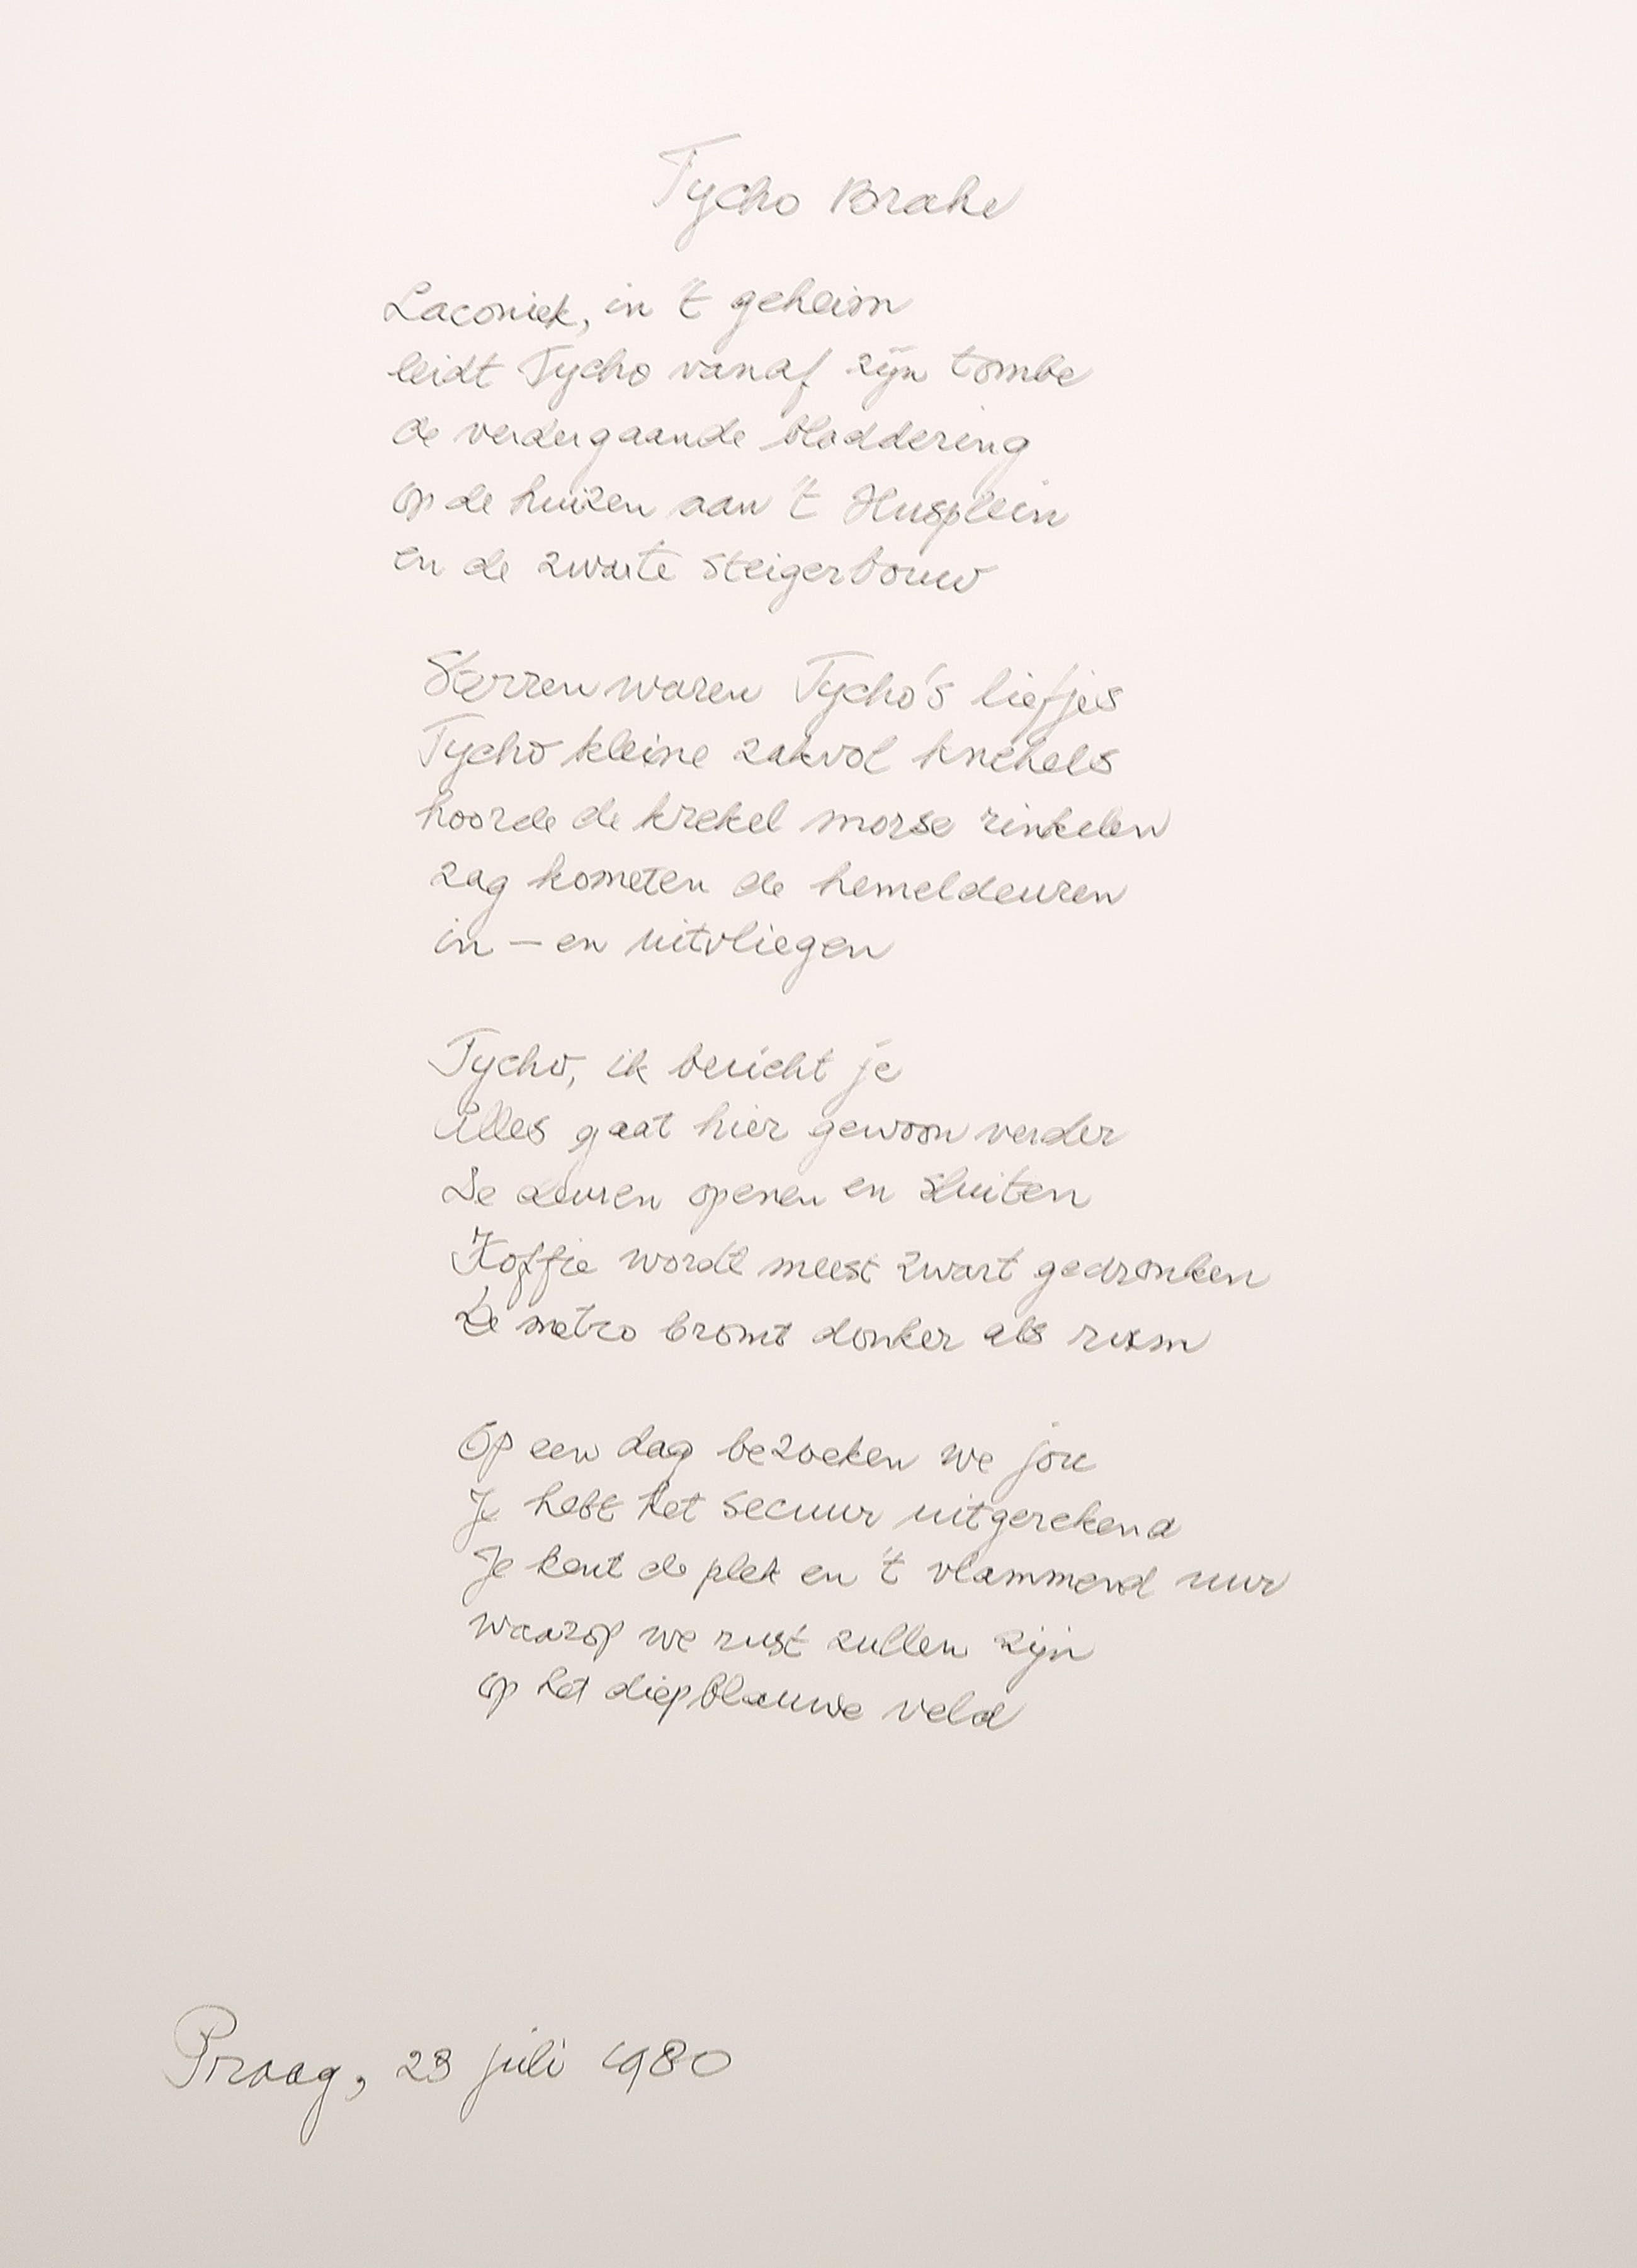 Tycho Brahe
Laconiek, in 't geheim
leidt Tycho vanaf zijn tombe
de verdergaande bladdering
op de huizen aan 't Husplein
en de zwarte steigerbouw
Sterren waren Tycho's liefjes
Tycho kleine zakvol knekels
hoorde de krekel morse rinkelen
zag kometen de hemeldeuren
in - en uitvliegen
Tycho, ik bericht je
Alles gaat hier gewoon verder
De deuren openen en sluiten
Koffie wordt meest zwart gedronken
De metro bromt donker als rum
Op een dag bezoeken we jou
Je hebt het secuur uitgerekend
Je kent de plek en 't vlammend uur
waarop we rust zullen zijn
op het diepblauwe veld
Praag, 23 juli 1980